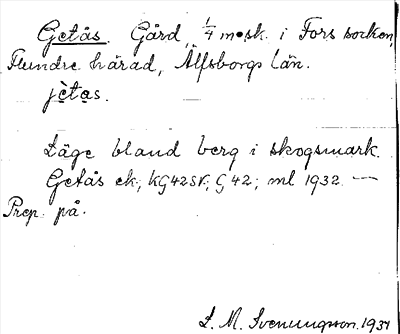 Getås. Gård, 1/4 m. sk. i Fors socken,
Flundre härad, Älfsborgs län.
jètas.
Läge bland berg i skogsmark.
Getås ek; KG42SV; G42; ml 1932. —
Prep. på.
L. M. Svenungsson. 1934